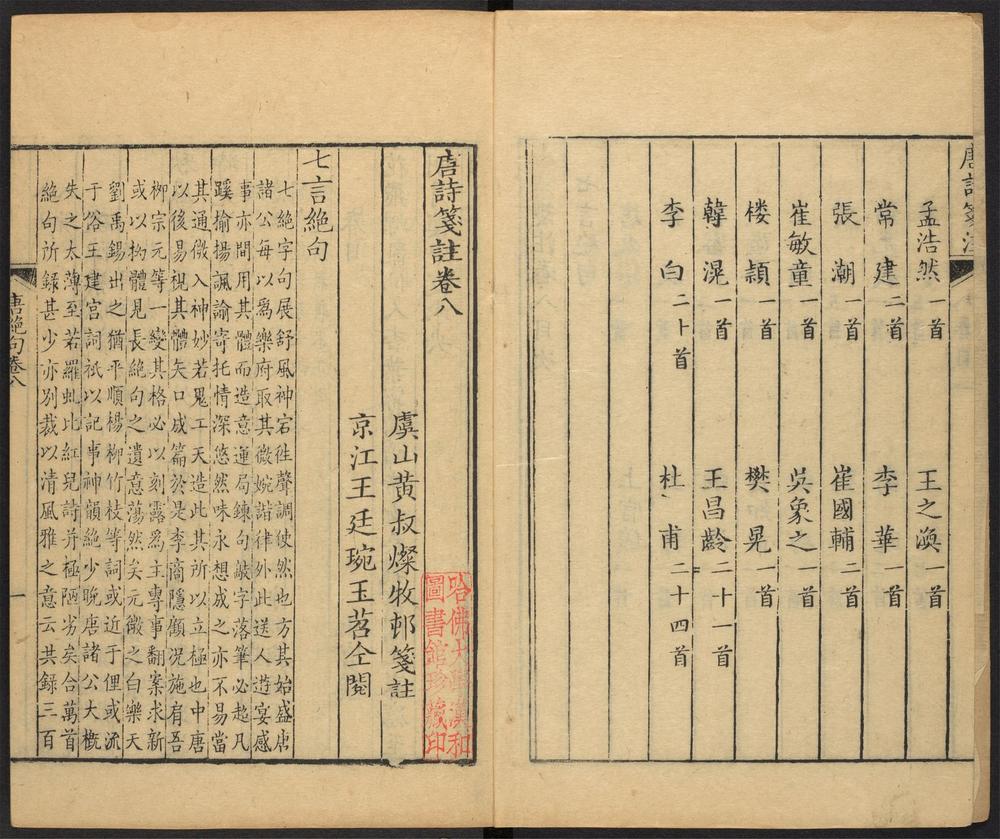 唐詩箋注
孟浩然一首 王之渙一首
常建二首 李華一首
張潮一首 崔國輔二首
崔敏童一首 吳象之一首
楼頴一首 樊晃一首
韓滉一首 王昌齡二十一首
李白二十首 杜甫二十四首
唐詩箋註卷八
虞山黃叔燦牧邨箋註
京江王廷琬玉茗仝閱
哈佛大學漢和
圖書館珍藏印
七言絶句
七絶字句展舒風神宕徃聲調使然也方其始盛唐
諸公每以爲樂府取其微婉諧律外此送人遊宴感
事亦間用其體而造意運局鍊句敲字落筆必超凡
蹊揄揚諷諭寄托情深悠然味永想成之亦不易當
其通微入神妙若鬼工天造此其所以立極也中唐
以後易視其體矢口成篇於是李商隱顧况施肩吾
柳宗元等一變其格必以刻露爲主專事翻案求新
或以拗體見長絶句之遺意蕩然矣元微之白樂天
劉禹錫出之猶平順楊柳竹枝等詞或近于俚或流
于俗王建宫詞祇以記事神韻絶少晚唐諸公大槪
失之太薄至若羅虬比紅兒詩并極陋劣矣合萬首
絶句所録甚少亦别裁以清風雅之意云共録三百
唐絶句卷八
一